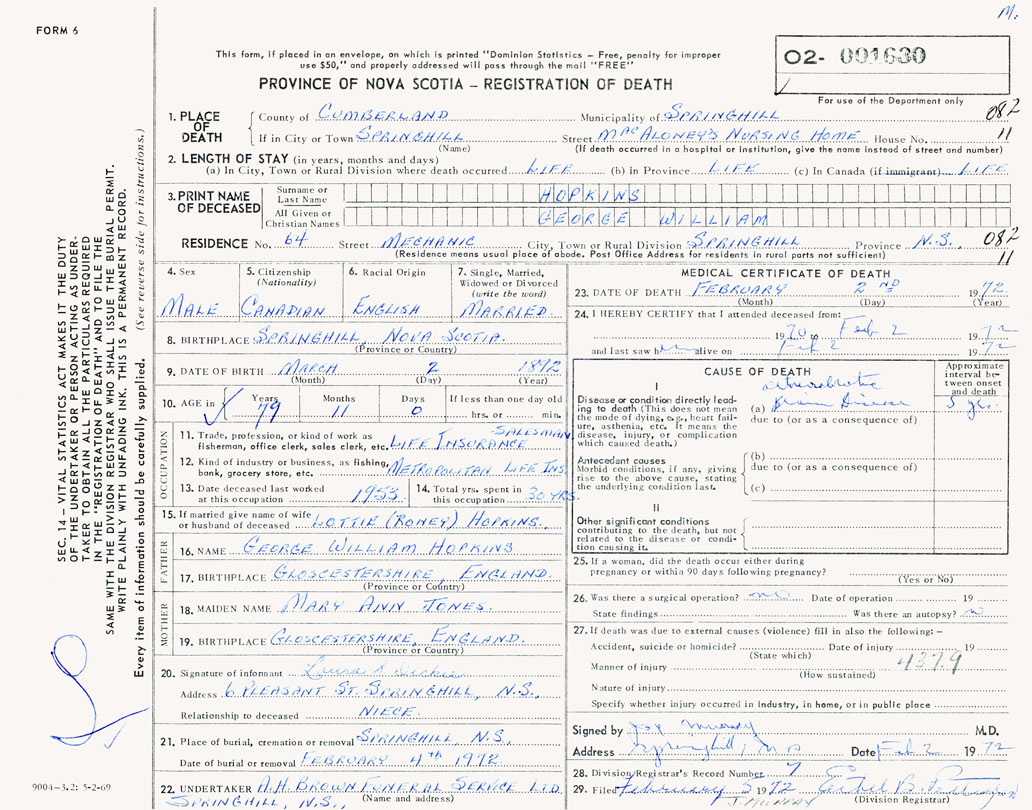 M.
FORM 6
This form, if placed in an envelope, on which is printed "Dominion Statistics – Free, penalty for improper
use $50," and properly addressed will pass through the mail "FREE"
O2- 001630
PROVINCE OF NOVA SCOTIA – REGISTRATION OF DEATH
For use of the Department only
1. PLACE OF DEATH
County of CUMBERLAND Municipality of SPRINGHILL 082
If in City or Town SPRINGHILL Street MACALONEY'S NURSING HOME House No. 11
(Name) (If death occurred in a hospital or institution, give the name instead of street and number)
2. LENGTH OF STAY (in years, months and days)
(a) In City, Town or Rural Division where death occurred LIFE (b) in Province LIFE (c) In Canada (if immigrant) LIFE
3. PRINT NAME OF DECEASED
Surname or Last Name HOPKINS
All Given or Christian Names GEORGE WILLIAM
RESIDENCE No. 64 Street MECHANIC City, Town or Rural Division SPRINGHILL Province N.S., 082
(Residence means usual place of abode. Post Office Address for residents in rural parts not sufficient) 11
4. Sex
MALE
5. Citizenship (Nationality)
CANADIAN
6. Racial Origin
ENGLISH
7. Single, Married, Widowed or Divorced (write the word)
MARRIED
8. BIRTHPLACE SPRINGHILL, NOVA SCOTIA.
(Province or Country)
9. DATE OF BIRTH MARCH 2 1892
(Month) (Day) (Year)
10. AGE in Years Months Days If less than one day old
79 11 0 hrs. or min.
OCCUPATION
11. Trade, profession, or kind of work as SALESMAN
fisherman, office clerk, sales clerk, etc. LIFE INSURANCE
12. Kind of industry or business, as fishing,
bank, grocery store, etc. METROPOLITAN LIFE INS.
13. Date deceased last worked
at this occupation 1953
14. Total yrs. spent in
this occupation 30 YRS.
15. If married give name of wife
or husband of deceased LOTTIE (RONEY) HOPKINS.
FATHER
16. NAME GEORGE WILLIAM HOPKINS
17. BIRTHPLACE GLOSCESTERSHIRE, ENGLAND.
(Province or Country)
MOTHER
18. MAIDEN NAME MARY ANN JONES.
19. BIRTHPLACE GLOSCESTERSHIRE, ENGLAND.
(Province or Country)
20. Signature of informant
Address 6 PLEASANT ST. SPRINGHILL, N.S.,
Relationship to deceased NIECE.
21. Place of burial, cremation or removal SPRINGHILL, N.S.,
Date of burial or removal FEBRUARY 4TH 1972.
22. UNDERTAKER A.H. BROWN FUNERAL SERVICE LTD.
SPRINGHILL, N.S., (Name and address)
MEDICAL CERTIFICATE OF DEATH
23. DATE OF DEATH FEBRUARY 2ND 1972
(Month) (Day) (Year)
24. I HEREBY CERTIFY that I attended deceased from:
1970 to Feb 2 1972
and last saw h alive on Feb 2 1972
CAUSE OF DEATH
Approximate interval between onset and death
I
Disease or condition directly leading to death (This does not mean the mode of dying, e.g., heart failure, asthenia, etc. It means the disease, injury, or complication which caused death.)
(a) Brain Disease 5 yrs.
due to (or as a consequence of)
Antecedent causes
Morbid conditions, if any, giving rise to the above cause, stating the underlying condition last.
(b)
due to (or as a consequence of)
(c)
II
Other significant conditions
contributing to the death, but not related to the disease or condition causing it.
25. If a woman, did the death occur either during
pregnancy or within 90 days following pregnancy?
(Yes or No)
26. Was there a surgical operation? no Date of operation 19
State findings Was there an autopsy? no
27. If death was due to external causes (violence) fill in also the following: –
Accident, suicide or homicide? Date of injury 19
(State which) 437.9
Manner of injury
(How sustained)
Nature of injury
Specify whether injury occurred in industry, in home, or in public place
Signed by Murray M.D.
Address Springhill, N S Date Feb 2 1972
28. Division Registrar's Record Number 7
29. Filed February 5 1972 Ethel B.
J. MURRAY (Division Registrar)
SEC. 14 – VITAL STATISTICS ACT MAKES IT THE DUTY
OF THE UNDERTAKER OR PERSON ACTING AS UNDER-
TAKER TO OBTAIN ALL THE PARTICULARS REQUIRED
IN THE "REGISTRATION OF DEATH" AND TO FILE THE
SAME WITH THE DIVISION REGISTRAR WHO SHALL ISSUE THE BURIAL PERMIT.
WRITE PLAINLY WITH UNFADING INK. THIS IS A PERMANENT RECORD.
Every item of information should be carefully supplied. (See reverse side for instructions.)
9004–3.2: 5-2-69